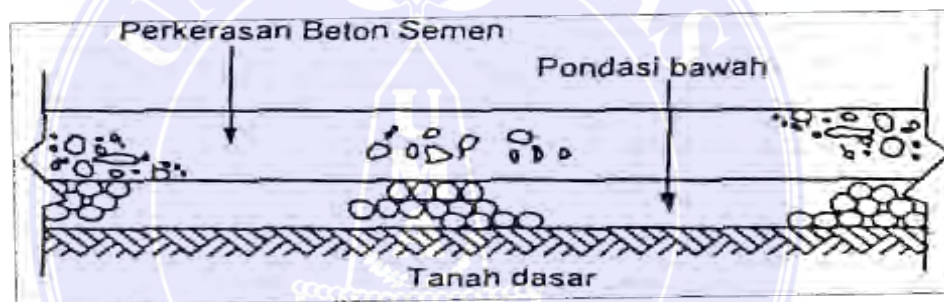 Perkerasan Beton Semen
Pondasi bawah
Tanah dasar